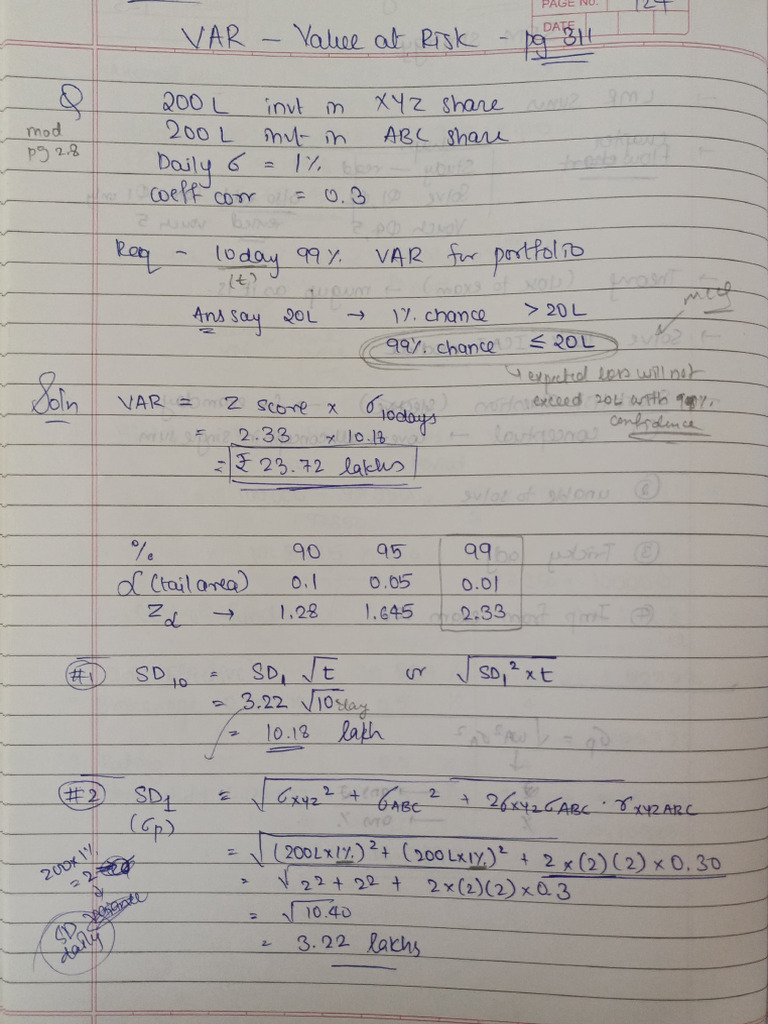 PAGE No. 124
DATE
VAR - Value at Risk - pg 311
Q 200 L invt in XYZ share
mod pg 2.8
200 L invt in ABC share
Daily σ = 1%
coeff corr = 0.3
Req - 10day 99% VAR for portfolio
(t)
Ans say 20L → 1% chance > 20L
MCQ
99% chance ≤ 20L
↳ expected loss will not
exceed 20L with 99%
confidence
Soln VAR = Z score x σ10days
= 2.33 x 10.18
= ₹ 23.72 lakhs
% 90 95 99
α (tail area) 0.1 0.05 0.01
Zα → 1.28 1.645 2.33
#1 SD10 = SD1 √t or √SD1² x t
= 3.22 √10 day
= 10.18 lakh
#2 SD1 = √σXYZ² + σABC² + 2σXYZσABC · rXYZABC
(σp)
= √(200L x 1%)² + (200L x 1%)² + 2 x (2)(2) x 0.30
200 x 1%
= 2
= √2² + 2² + 2 x (2)(2) x 0.3
= √10.40
SD daily
= 3.22 lakhs